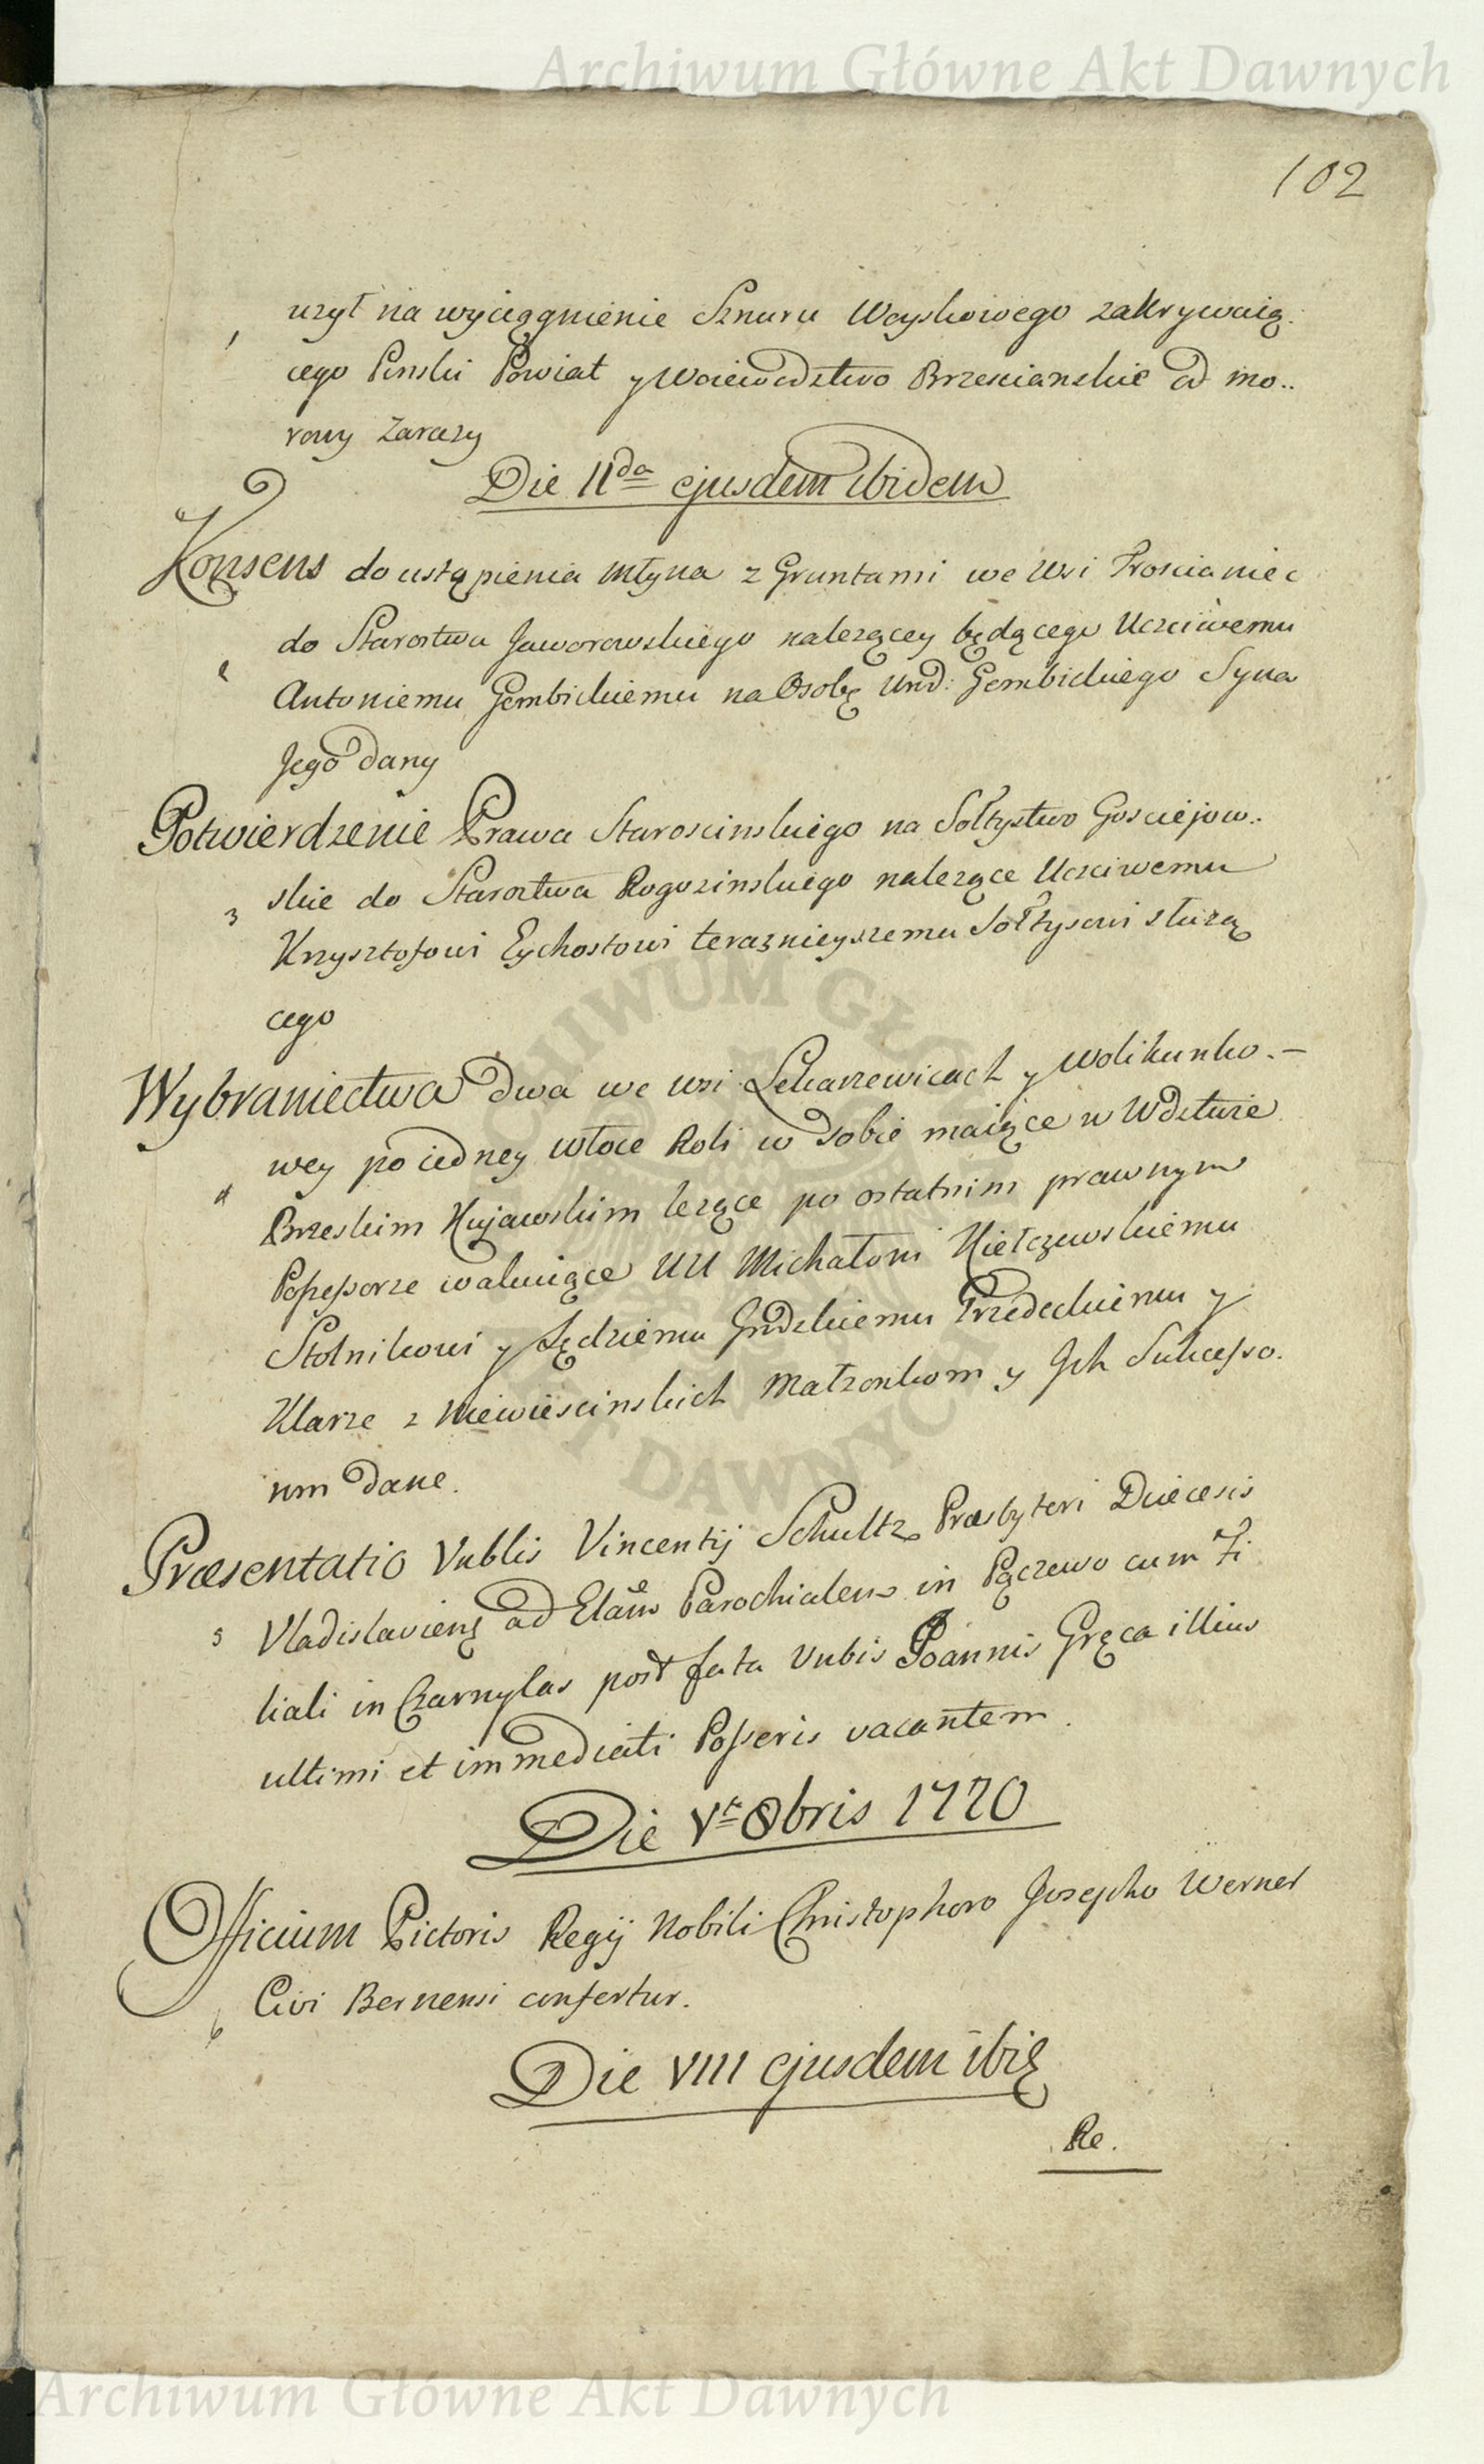 Archiwum Główne Akt Dawnych
102
uzył na wyciągnienie Sznuru Woyskowego zakrywaią:
1 cego Pinski Powiat y Woiewodztwo Brzescianskie od mo..
rowy Zarazy
Die IIda ejusdem ibidem
Konsens do ustąpienia Młyna z Gruntami we Wsi Troscianiec
do Starostwa Jaworowskiego należącey będącego Uczciwemu
2 Antoniemu Gembickiemu na Osobę Und: Gembickiego Syna
Jego dany
Potwierdzenie Prawa Staroscinskiego na Sołtystwo Gosciejow..
3 skie do Starostwa Rogozinskiego należące Uczciwemu
Krzysztofowi Eychostowi teraznieyszemu Sołtysowi służą
cego
Wybraniectwa dwa we wsi Lekarzewicach y Wolikunko.-
4 wey po iedney włoce Roli w sobie maiące w Wdztwie
Brzeskim Kujawskim leżące po ostatnim prawnym
Possessorze wakuiące UU Michałowi Kiełczewskiemu
Stolnikowi y Sędziemu Grdzkiemu Przedeckiemu y
Klarze z Niewiescinskich Małżonkom y Ich Sukcesso.
rom dane.
Præsentatio Vnblis Vincentij Schultz Præsbyteri Diæcesis
5 Vladislaviens ad Elam Parochialem in Pączewo cum Fi
liali in Czarnylas post fata Vnbis Joannis Gręca illius
ultimi et immediati Possoris vacantem.
Die Vta 8bris 1770
Officium Pictoris Regij Nobili Christophoro Josepho Werner
6 Civi Bernensi confertur.
Die VIII ejusdem ibid
Re.
ARCHIWUM GŁÓWNE AKT DAWNYCH
Archiwum Główne Akt Dawnych